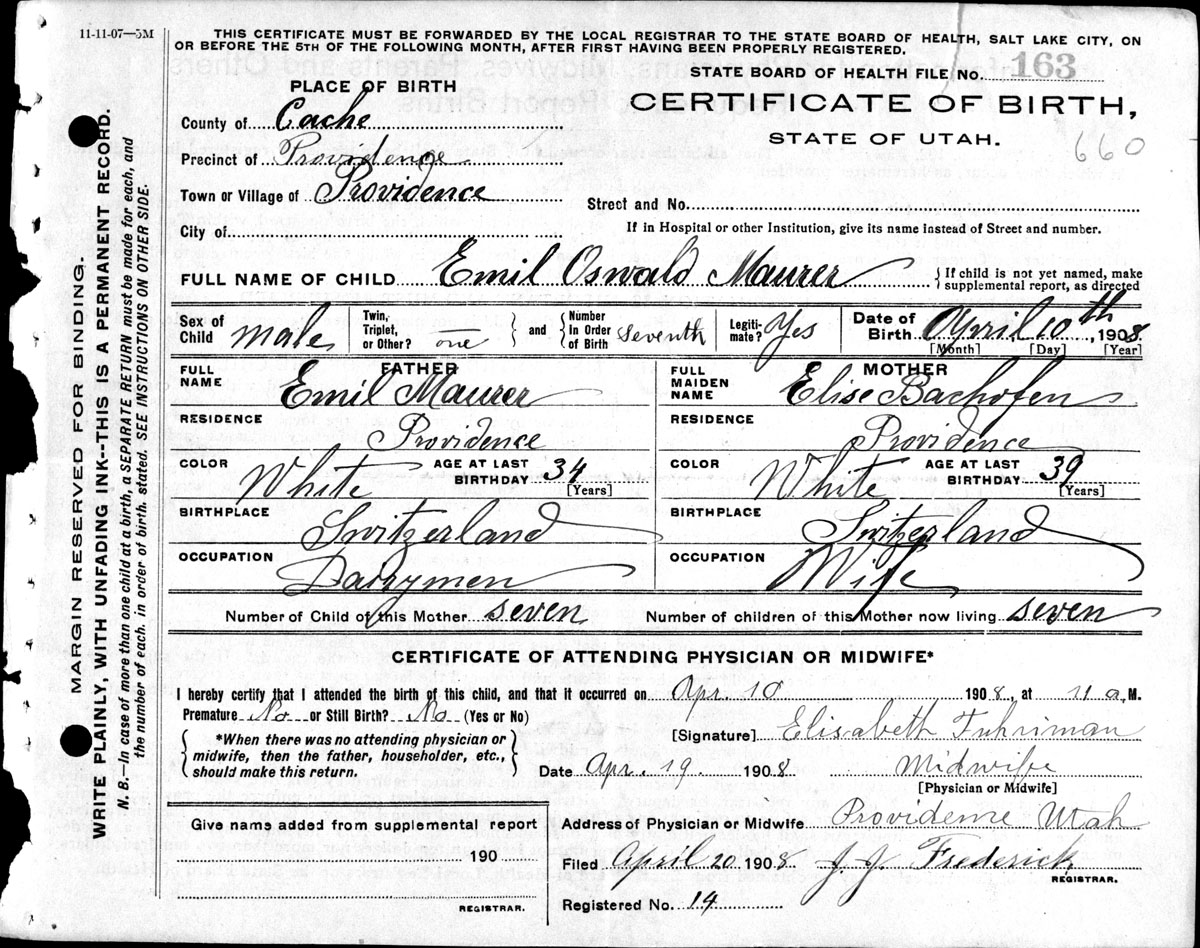 11-11-07—5M
THIS CERTIFICATE MUST BE FORWARDED BY THE LOCAL REGISTRAR TO THE STATE BOARD OF HEALTH, SALT LAKE CITY, ON
OR BEFORE THE 5TH OF THE FOLLOWING MONTH, AFTER FIRST HAVING BEEN PROPERLY REGISTERED.
STATE BOARD OF HEALTH FILE No. 163
PLACE OF BIRTH
CERTIFICATE OF BIRTH,
STATE OF UTAH.
660
County of Cache
Precinct of Providence
Town or Village of Providence
Street and No.
City of
If in Hospital or other Institution, give its name instead of Street and number.
FULL NAME OF CHILD Emil Oswald Maurer { If child is not yet named, make
supplemental report, as directed
Sex of Child male Twin, Triplet, or Other? one } and { Number In Order of Birth seventh Legiti-mate? Yes Date of Birth April 10th, 1908
[Month] [Day] [Year]
FATHER MOTHER
FULL NAME Emil Maurer FULL MAIDEN NAME Elise Bachofen
RESIDENCE Providence RESIDENCE Providence
COLOR White AGE AT LAST BIRTHDAY 34 [Years] COLOR White AGE AT LAST BIRTHDAY 39 [Years]
BIRTHPLACE Switzerland BIRTHPLACE Switzerland
OCCUPATION Dairymen OCCUPATION Wife
Number of Child of this Mother seven Number of children of this Mother now living seven
CERTIFICATE OF ATTENDING PHYSICIAN OR MIDWIFE*
I hereby certify that I attended the birth of this child, and that it occurred on Apr. 10 1908, at 11 a, M.
Premature No or Still Birth? No (Yes or No)
[Signature] Elisabeth Fuhriman
{ *When there was no attending physician or
midwife, then the father, householder, etc.,
should make this return. }
Date Apr. 19. 1908 Midwife
[Physician or Midwife]
Give name added from supplemental report
190
REGISTRAR.
Address of Physician or Midwife Providence Utah
Filed April 20 1908 J. J. Frederick
REGISTRAR.
Registered No. 14
MARGIN RESERVED FOR BINDING.
WRITE PLAINLY, WITH UNFADING INK--THIS IS A PERMANENT RECORD.
N. B.—In case of more than one child at a birth, a SEPARATE RETURN must be made for each, and
the number of each, in order of birth, stated. SEE INSTRUCTIONS ON OTHER SIDE.